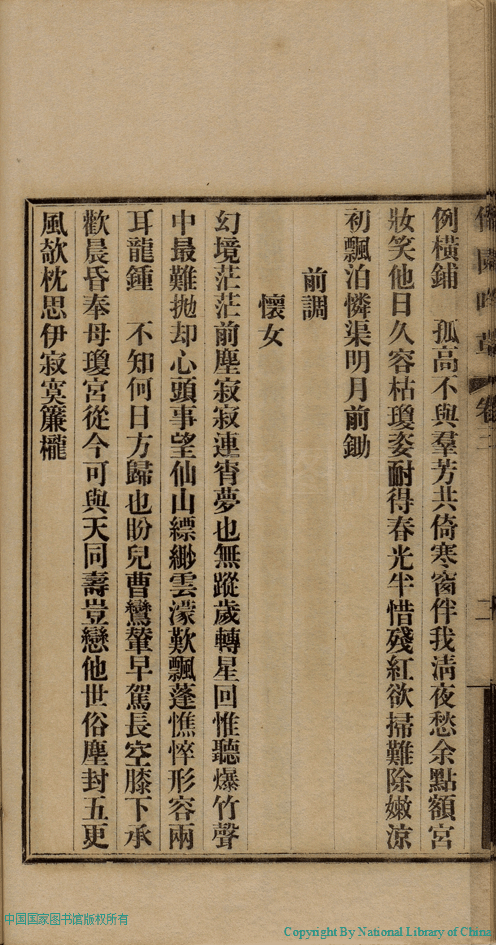 例橫鋪　孤高不與羣芳共倚寒窗伴我淸夜愁余點額宮
妝笑他日久容枯瓊姿耐得春光半惜殘紅欲掃難除嫩涼
初飄泊憐渠明月前鋤
前調
懷女
幻境茫茫前塵寂寂連宵夢也無蹤歲轉星回惟聽爆竹聲
中最難拋却心頭事望仙山縹緲雲濛歎飄蓬憔悴形容兩
耳龍鍾　不知何日方歸也盼兒曹鸞輦早駕長空膝下承
歡晨昏奉母瓊宮從今可與天同壽豈戀他世俗塵封五更
風欹枕思伊寂寞簾櫳
卷三
二
中国国家图书馆版权所有
Copyright By National Library of China